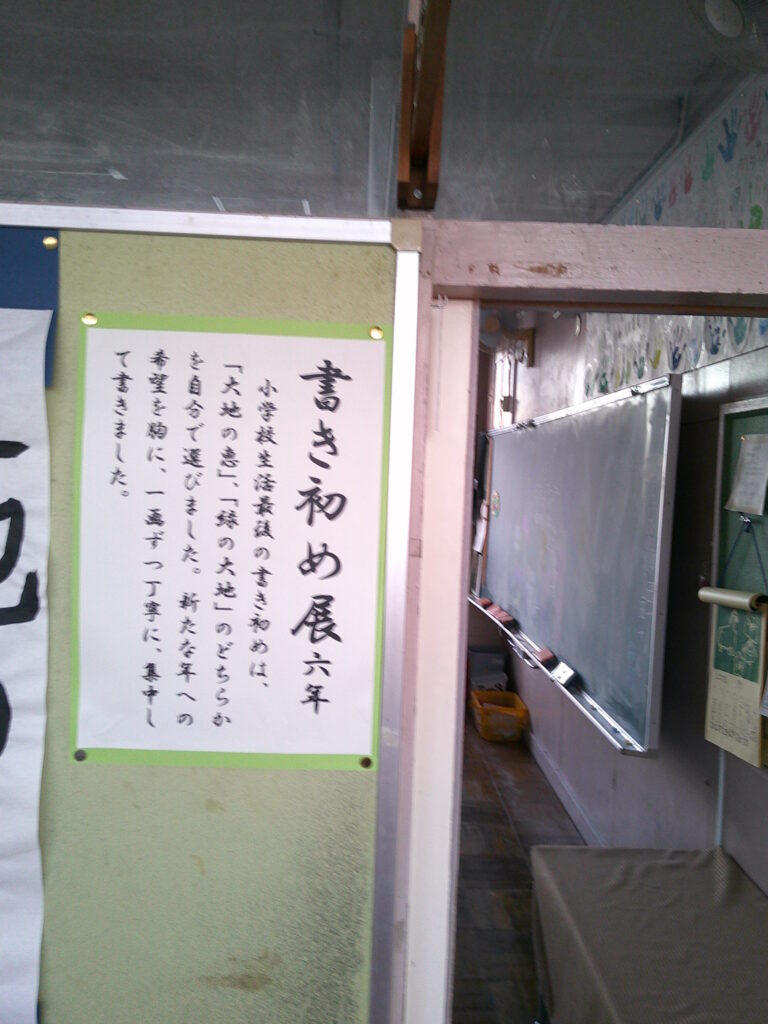 書き初め展 六年
小学校生活最後の書き初めは、
「大地の恵」、「緑の大地」のどちらか
を自分で選びました。新たな年への
希望を胸に、一画ずつ丁寧に、集中し
て書きました。